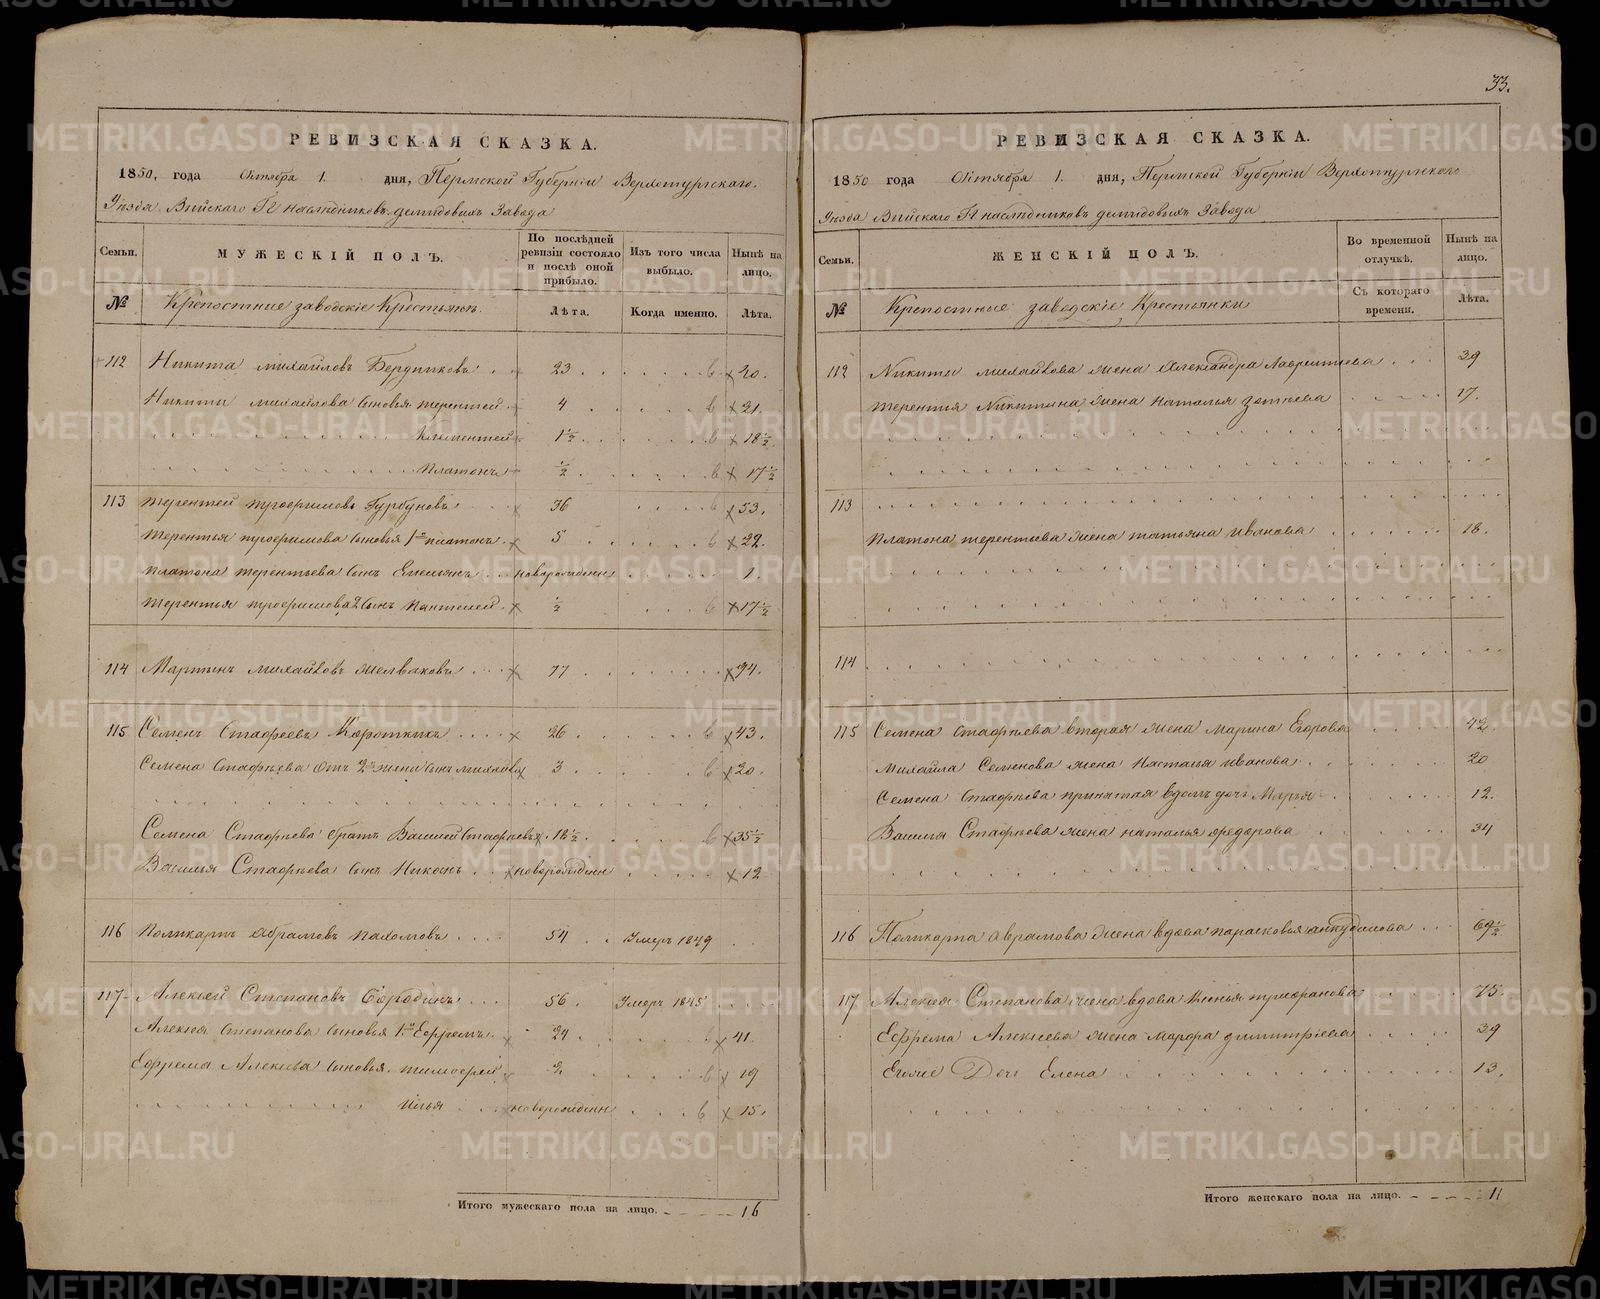 33.
РЕВИЗСКАЯ СКАЗКА.
1850, года Октября 1. дня, Пермской Губернiи Верхотурскаго.
Уѣзда Выйскаго Гг наслѣдниковъ демидовыхъ Завода
Семьи. МУЖЕСКIЙ ПОЛЪ. По послѣдней ревизiи состояло и послѣ оной прибыло. Изъ того числа выбыло. Нынѣ на лицо.
№ Крѣпостные заводскiе Крестьяне. Лѣта. Когда именно. Лѣта.
112 Никита михайловъ Бердниковъ 23 20.
Никиты михайлова сыновья терентей 4 21.
Климентей 1½ 18½
Платонъ ½ 17½
113 терентей трофимовъ Гурбуновъ 36 53.
терентья трофимова сыновья 1й платонъ 5 22.
платона терентьева сынъ Емельянъ новорожденн 1.
терентья трофимова 2 сынъ пантелей ½ 17½
114 Мартынъ михайловъ желваковъ 77 94.
115 Семенъ Стафеевъ Коротких 26 43.
Семена Стафѣева отъ 2й жены сынъ михайло 3 20.
Семена Стафѣева братъ Василей Стафѣевъ 18½ 35½
Василья Стафѣева сынъ Никонъ новорожденн 12
116 Поликарпъ Абрамовъ Пахомовъ 54 Умеръ 1849
117 Алексѣй Степановъ Бородинъ 56. Умеръ 1845
Алексѣя степанова сыновья 1й Ефремъ 24 41
Ефрема Алексѣева сыновья тимофей 2 19
илья новорожденн 15.
Итого мужескаго пола на лицо. 16
РЕВИЗСКАЯ СКАЗКА.
1850 года Октября 1. дня, Пермской Губернiи Верхотурскаго
Уѣзда Выйскаго Гг наслѣдниковъ демидовыхъ Завода
Семьи. ЖЕНСКIЙ ПОЛЪ. Во временной отлучкѣ. Нынѣ на лицо.
№ Крѣпостные заводскiе Крестьянки Съ котораго времени. Лѣта.
112 Никиты михайлова жена Александра Лаврентьева 39
терентья Никитина жена наталья зотѣева 17.
113
Платона терентьева жена татьяна иванова 18.
114
115 Семена стафѣева вторая жена марина Егорова 42.
михайла Семенова жена Настасья иванова 20
Семена стафѣева принятая вдомъ дочь Марья 12.
Василья Стафѣева жена наталья федорова 34
116 Поликарпа аврамова жена вдова парасковья анкудинова 69½
117 Алексѣя Степанова жена вдова Ксенья трифанова 75.
Ефрема Алексѣева жена марфа димитрiева 39
Егоже Дочь Елена 13.
Итого женскаго пола на лицо. 11
METRIKI.GASO-URAL.RU